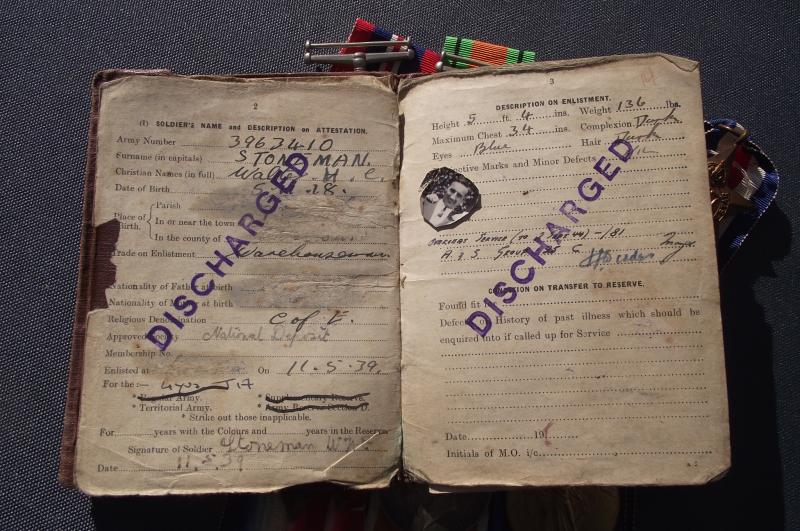 2
(I) SOLDIER'S NAME and DESCRIPTION on ATTESTATION.
Army Number 3963410
Surname (in capitals) STONEMAN.
Christian Names (in full) H. C.
Date of Birth 18.
Parish
Place of Birth. In or near the town
In the county of
Trade on Enlistment Warehouseman
Nationality of Father at birth
Nationality of Mother at birth
Religious Denomination C of E.
Approved Society National Deposit
Membership No.
Enlisted at On 11.5.39.
For the :-
* Regular Army. * Supplementary Reserve.
* Territorial Army. * Army Reserve Section D.
* Strike out those inapplicable.
For years with the Colours and years in the Reserve
Signature of Soldier Stoneman
Date 11.5.39
DISCHARGED
3
DESCRIPTION ON ENLISTMENT.
Height 5 ft. 4 ins. Weight 136 lbs.
Maximum Chest 34 ins. Complexion Dark
Eyes Blue Hair Dark
Distinctive Marks and Minor Defects Nil
DISCHARGED
CONDITION ON TRANSFER TO RESERVE.
Found fit for
Defects or History of past illness which should be
enquired into if called up for Service
Date 19
Initials of M.O. i/c